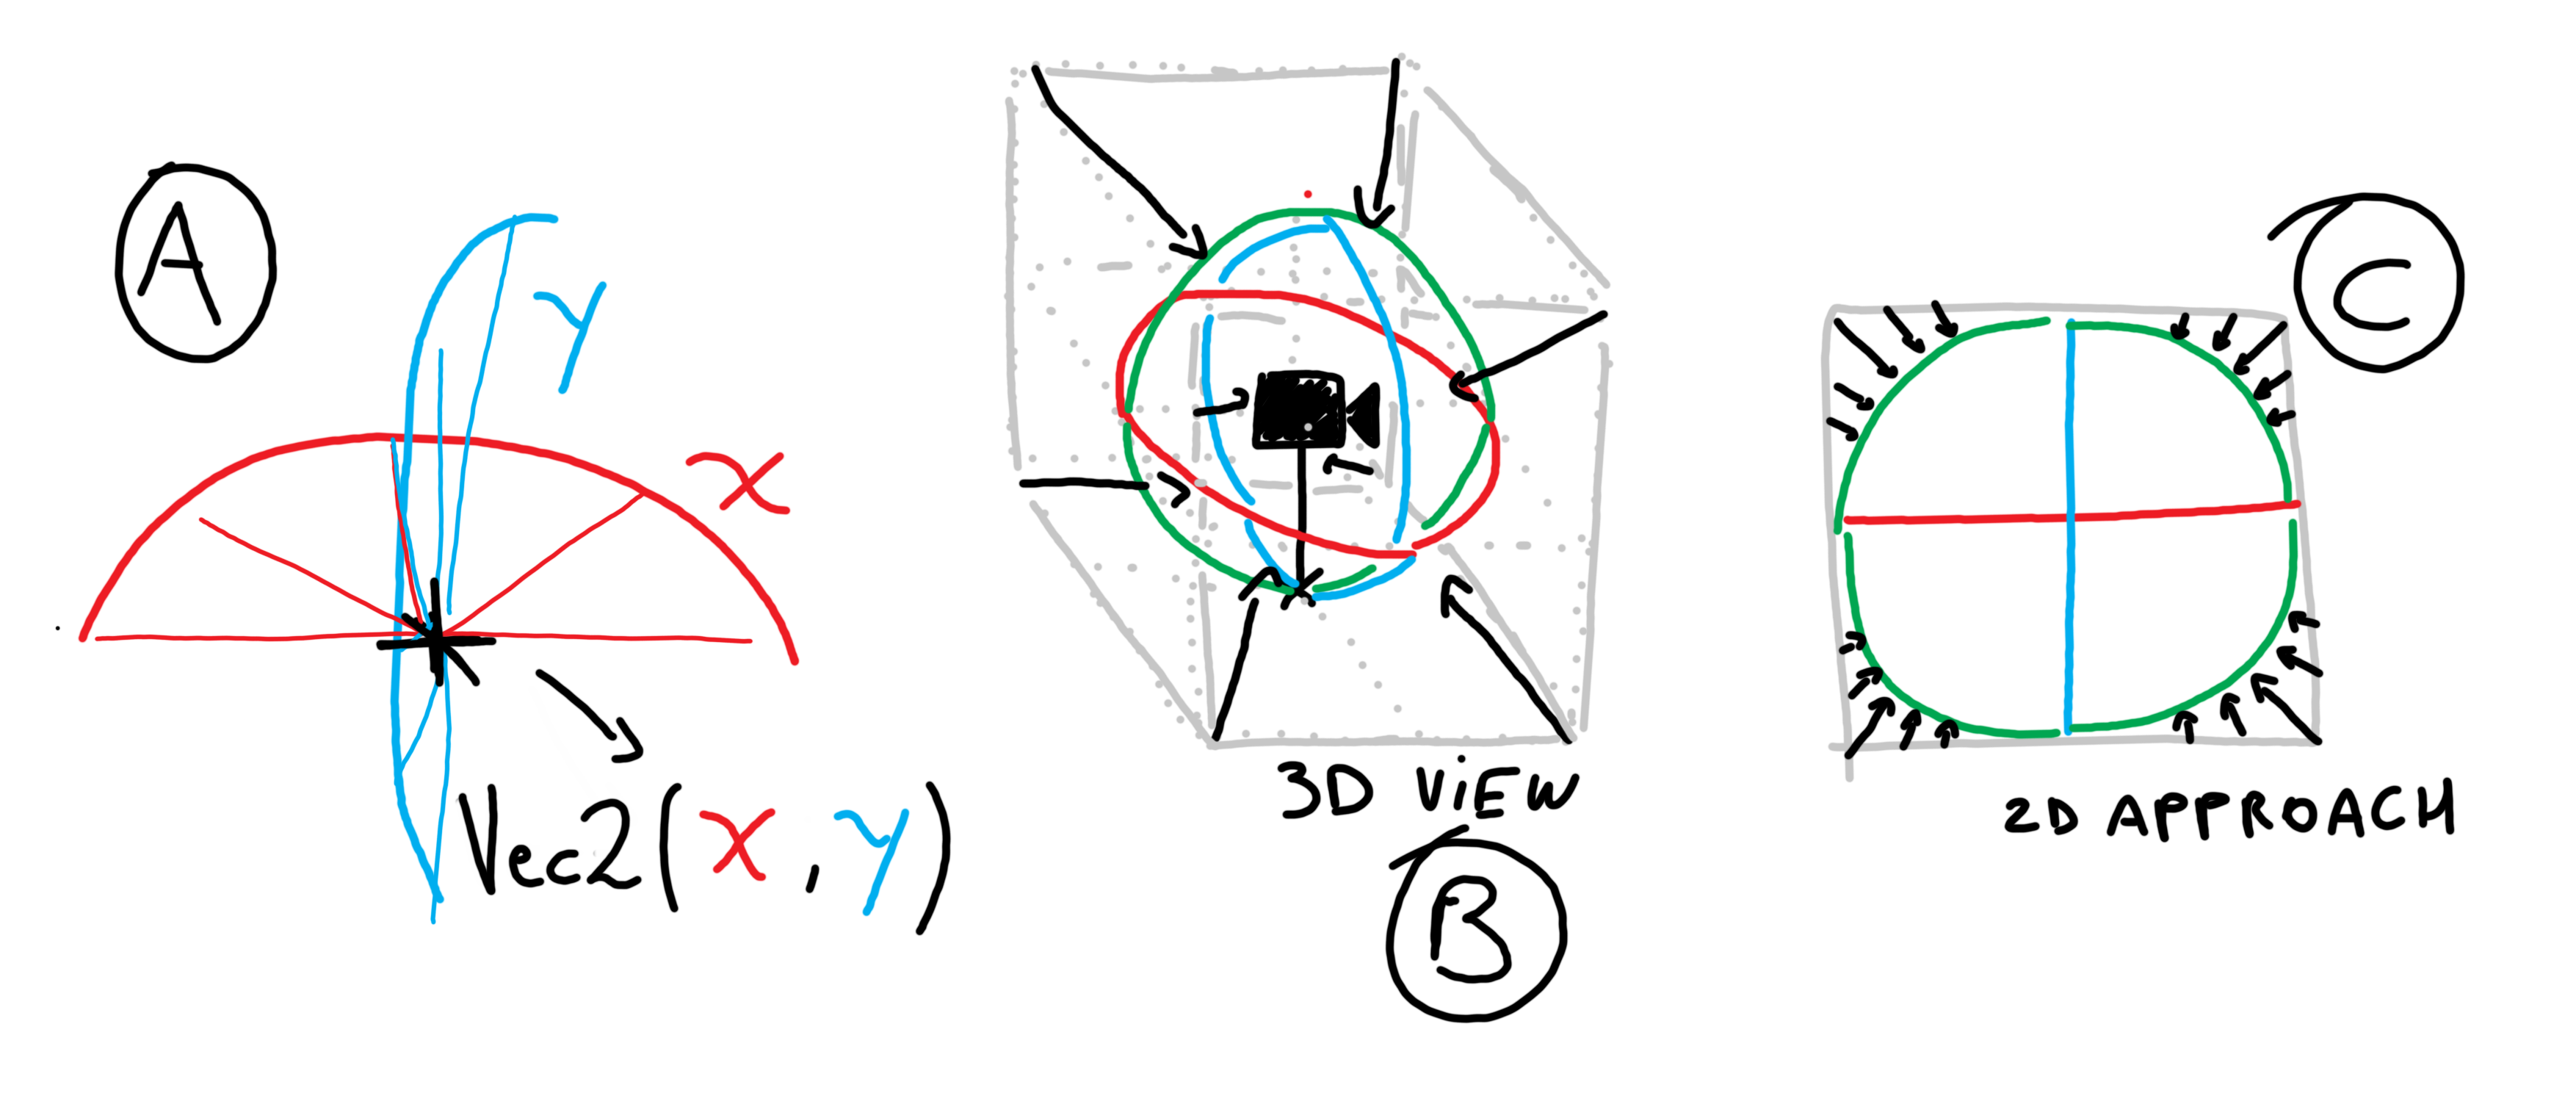 A
Y
X
Vec2(X,Y)
3D ViEW
B
C
2D APPROACH